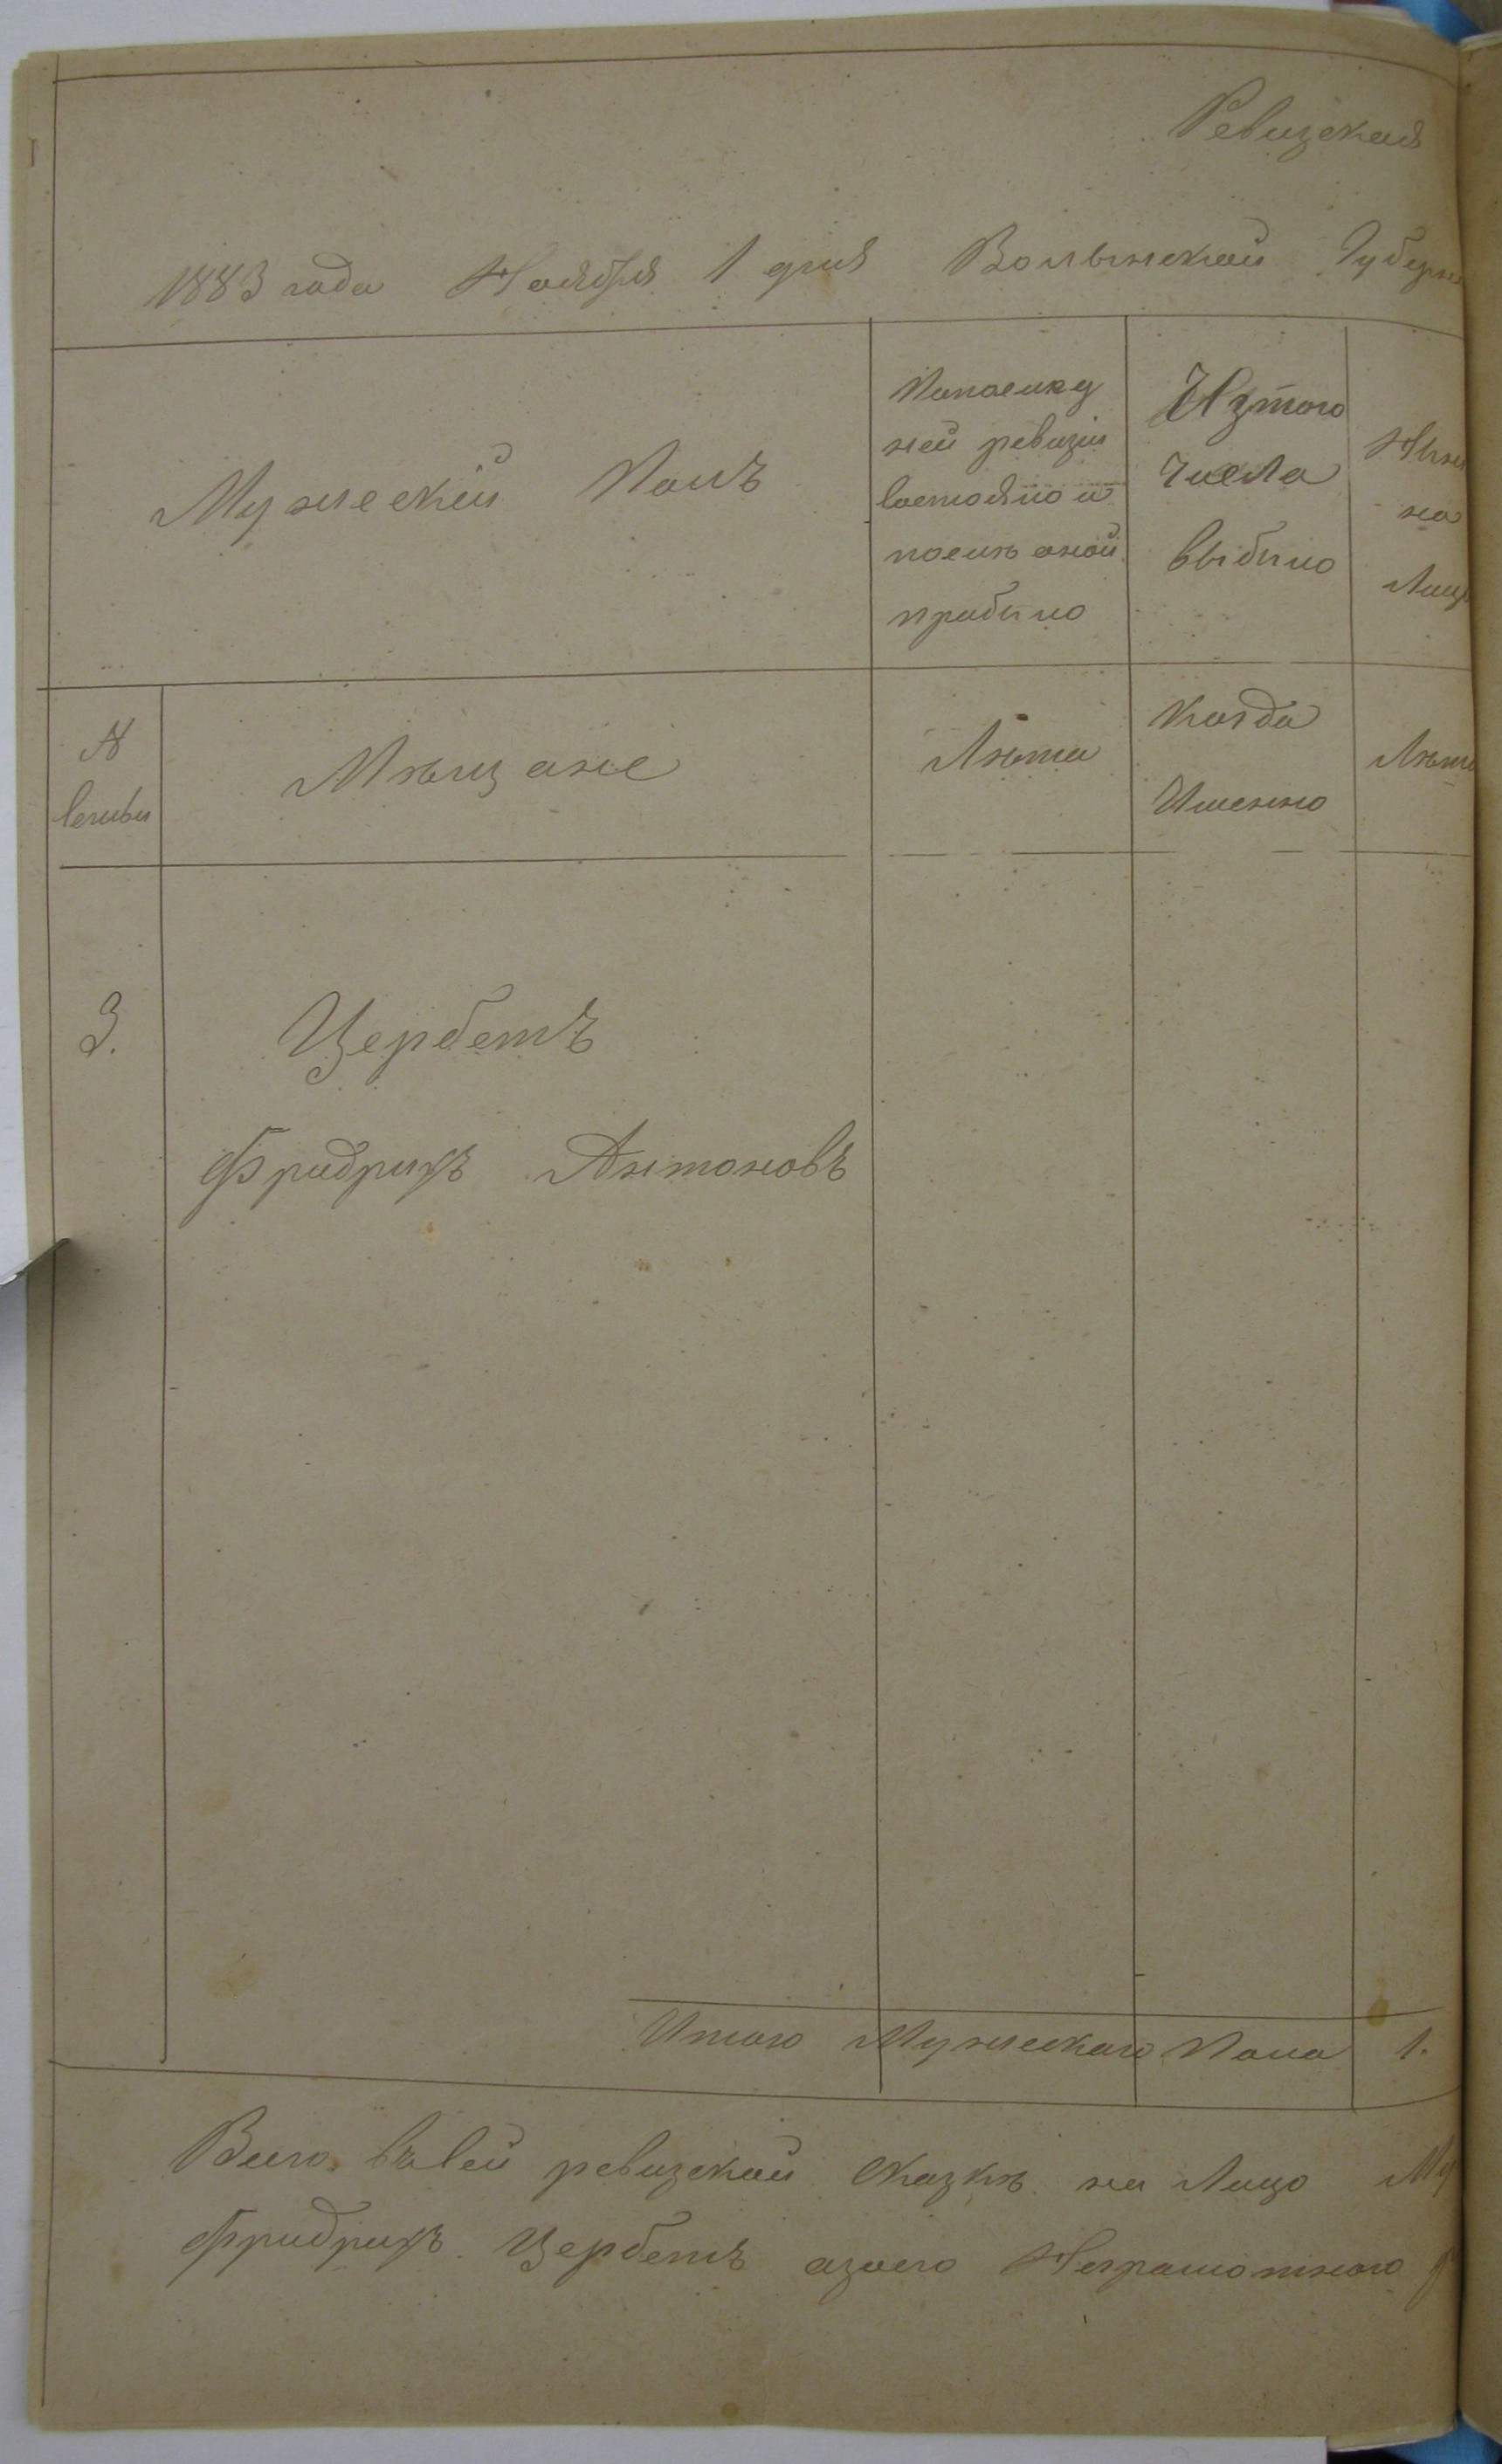 Ревизская
1883 года Ноября 1 дня Волынской Губерн
Мужескій Полъ
Попослѣд
ней ревизіи
состояло и
послѣ оной
прибыло
Изтого
числа
выбыло
Нын
на
Лицо
№
семьи
Мѣщане
Лѣта
Когда
Именно
Лѣта
3.
Цербетъ
Фридрихъ Антоновъ
Итого Мужескаго Пола 1.
Всего въсей ревизской сказкѣ на Лицо Му
Фридрихъ Цербетъ азаего Неграмотнаго